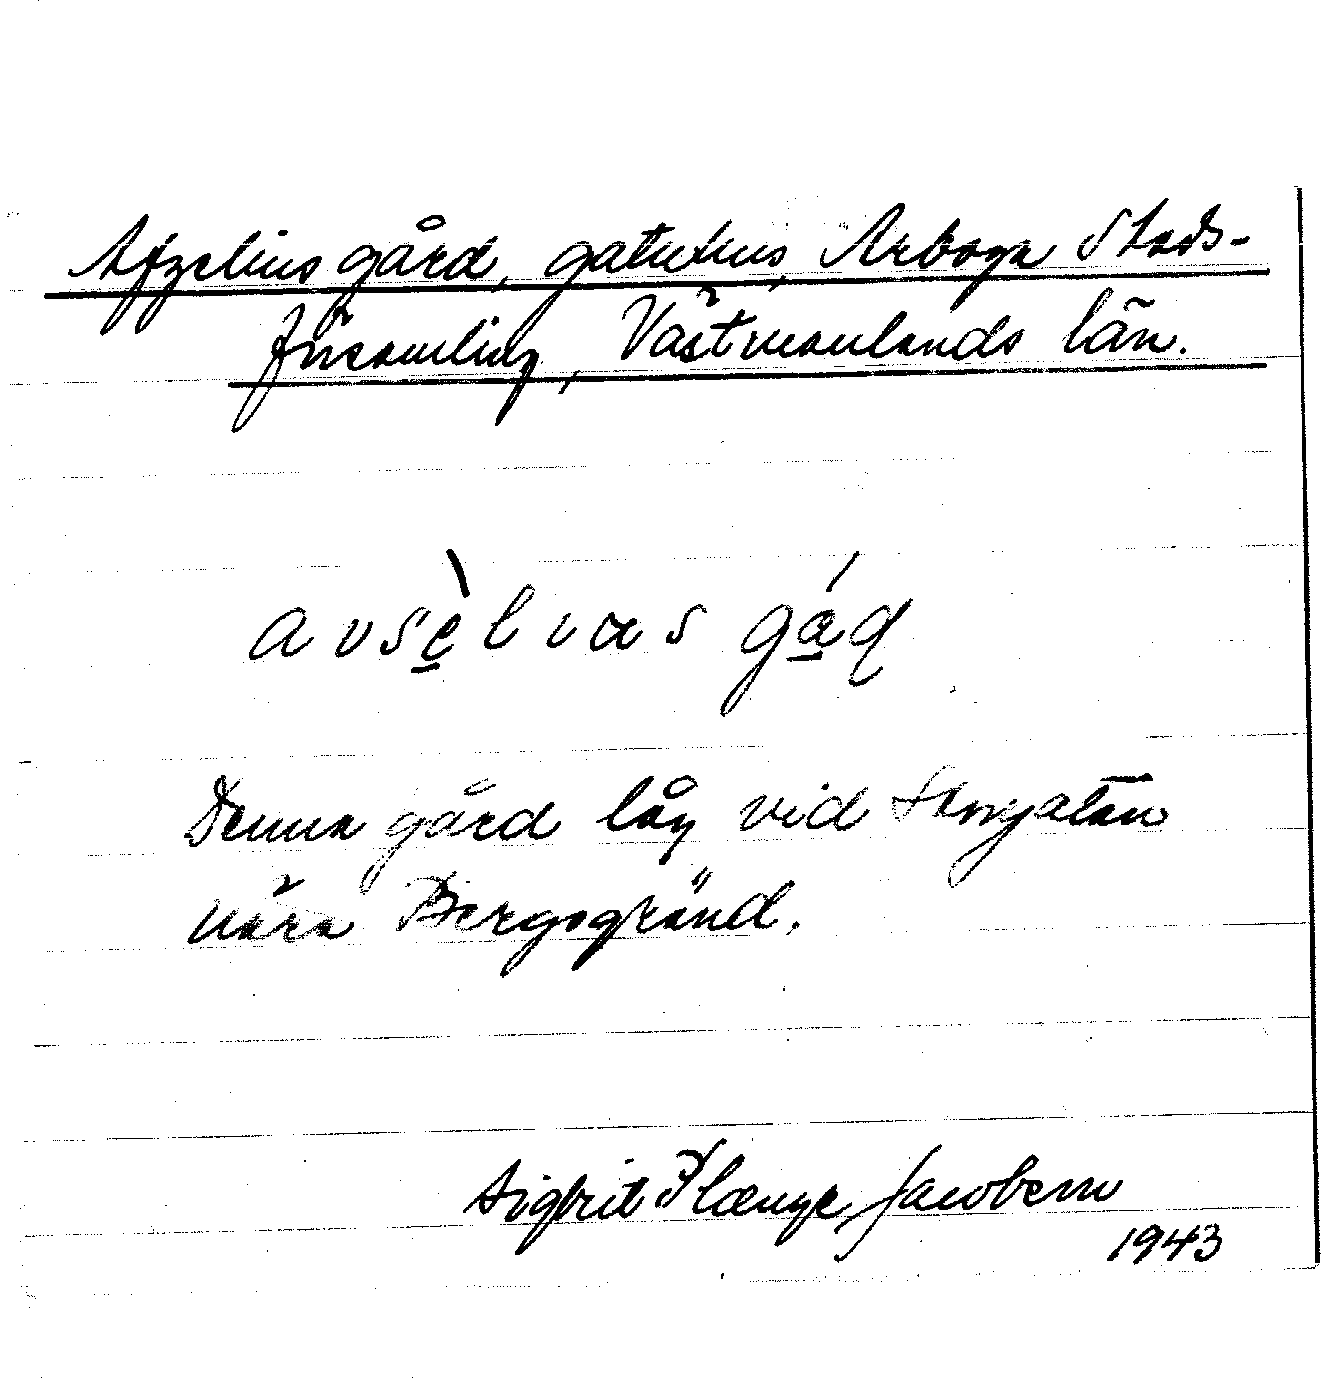 Afzelius gård, gatuhus, Arboga Stads-
församling, Västmanlands län.
avsèlius gáɖ
Denna gård låg vid Storgatan
nära Bergsgränd.
Sigfrit Plænge Jacobson
1943